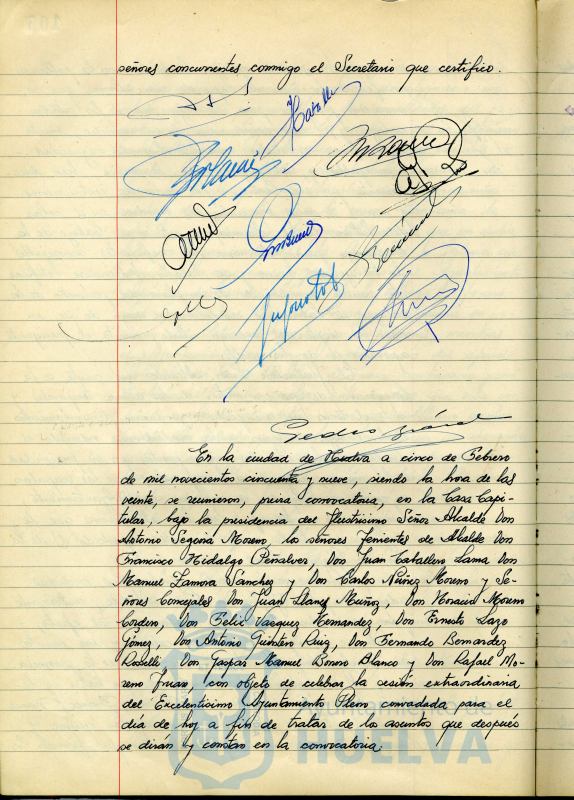 señores concurrentes conmigo el Secretario que certifico.
Pedro
En la ciudad de Huelva a cinco de Febrero
de mil novecientos cincuenta y nueve, siendo la hora de las
veinte, se reunieron, previa convocatoria, en la Casa Capi-
tular, bajo la presidencia del Ilustrísimo Señor Alcalde Don
Antonio Segovia Moreno, los señores Tenientes de Alcalde Don
Francisco Hidalgo Peñalver, Don Juan Caballero Lama Don
Manuel Zamora Sanchez y Don Carlos Nuñez Moreno y Se-
ñores Concejales Don Juan Llanes Muñoz, Don Horacio Moreno
Cordero, Don Felix Vazquez Hernandez, Don Ernesto Lazo
Gómez, Don Antonio Quintero Ruiz, Don Fernando Bernardez
Roselli Don Gaspar Manuel Borrero Blanco y Don Rafael Mo-
reno, con objeto de celebrar la sesión extraordinaria
del Excelentísimo Ayuntamiento Pleno convocada para el
día de hoy a fin de tratar de los asuntos que después
se dirán y constan en la convocatoria:
HUELVA